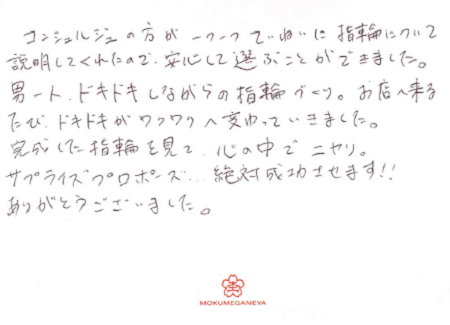 コンシェルジュの方が一つ一つていねいに指輪について
説明してくれたので、安心して選ぶことができました。
男一人、ドキドキしながらの指輪づくり。お店へ来る
たび、ドキドキがワクワクへ変わっていきました。
完成した指輪を見て、心の中でニヤリ。
サプライズプロポーズ...絶対成功させます!!
ありがとうございました。
MOKUMEGANEYA